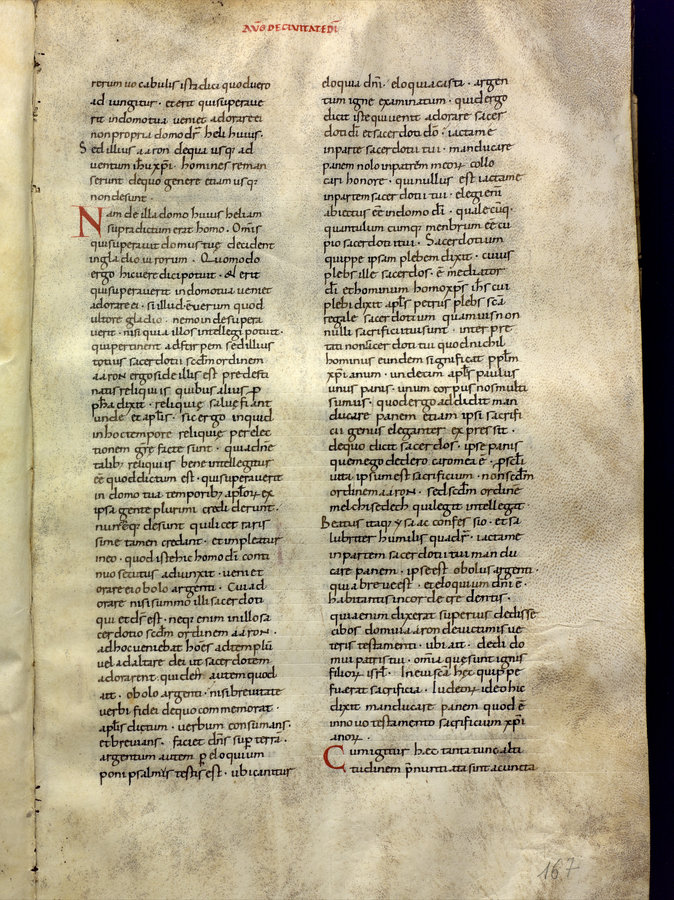 AUG DE CIVITATE DĪ
rerum uocabulis ista dici quod uero
ad iungitur · et erit qui superaue
rit in domo tua ueniet adorare ei
non propria domo dr̄ heli huius ·
Sed illius aaron de qua usq; ad
uentum ihū xp̄i · homines reman
serunt de quo genere etiam usq;
non desunt ·
Nam de illa domo huius heli iam
supra dictum erat homo · Om̄is
qui superauit domus tuę decident
in gladio uirorum · Quomodo
ergo hic uere dici potuit · & erit
qui superauerit in domo tua ueniet
adorare ei · si illud ē uerum quod
ultore gladio · nemo inde supera
uerit · nisi quia illos intellegi potuit ·
qui pertinent ad stirpem sed illius
totius sacerdotii scd̄m ordinem
aaron ergo si de illis est predesti
natis reliquiis quibus alius p̱
pha dixit · reliquię saluę fiant
unde et apl̄s · sic ergo inquid
in hoc tempore reliquię per elec
tionem grę factę sunt · quia de
talib; reliquiis bene intellegitur
ēē quod dictum est · qui superauerit
in domo tua temporib; apl̄oꝝ ex
ipsa gente plurimi crediderunt ·
nunc neq; desunt qui licet raris
sime tamen credant · et impleatur
in eo · quod iste hic homo dī conti
nuo secutus adiunxit · ueniet
orare ei obolo argenti · Cui ad
orare nisi summo illi sacerdoti
qui et ds̄ est · neq; enim in illo sa
cerdotio scd̄m ordinem aaron ·
ad hoc ueniebat hoēs ad templū
uel ad altare dei ut sacerdotem
adorarent · quid est autem quod
ait · obolo argenti · nisi breuitate
uerbi fidei de quo commemorat ·
apl̄s dictum · uerbum consumans ·
et breuians · faciet dn̄s sup̱ terra ·
argentum autem p̱ eloquium
poni psalmis testis est · ubi canitur
eloquia dn̄i · eloquia casta · argen
tum igne examinatum · quid ergo
dicit iste qui uenit adorare sacer
doti dī et sacerdoti dō · iacta me
in parte sacerdotii tui · manducare
panem nolo in patrēm meoꝝ collo
cari honore · qui nullus est iacta me
in partem sacerdotii tui · elegi eni
abiectus ēē in domo dī · qualecūq;
quantulum cumq; menbrum ēē cu
pio sacerdotii tui · Sacerdotium
quippe ipsam plebem dixit · cuius
plebis ille sacerdos · ē mediator
dī et hominum homo xp̄s ihs̄ cui
plebi dixit apl̄s petrus plebs scā
regale sacerdotium quamuis non
nulli sacrificii tui sunt · inter pre
tati non sacerdotii tui quod nichil
hominus eundem significat pp̄lm̄
xp̄ianum · unde cum apl̄s paulus
unus panis · unum corpus nos multi
sumus · quod ergo addidit man
ducare panem etiam ipsi sacrifi
cii genus eleganter expressit ·
de quo dicit sacerdos · ipse panis
quem ego dedero caro mea ē · p̱ scl̄i
uita ipsum est sacrificium · non scd̄m
ordinem aaron · sed scd̄m ordinē
melchisedech qui legit intellegat
Beatus itaq; ysaac confessio · et sa
lubriter humilis quadr̄ · iacta me
in partem sacerdotii tui mandu
care panem · ipse est obolus argenti ·
quia breue est · et eloquium dn̄i ē ·
habitantis in corde credentis ·
quia enim dixerat superius dedisse
cibos domui aaron de uictimis ue
teris testamenti · ubi ait · dedi do
mui patris tui · om̄ia quę sunt ignis
filioꝝ isrl̄ · In eius ēa hec quippe
fuerat sacrificia · Iudeoꝝ ideo hic
dixit manducare panem quod ē
in nouo testamento sacrificium xp̄i
anoꝝ ·
Cum igitur hęc tanta tunc alti
tudinem p̄nuntiata sint ac uncta
167